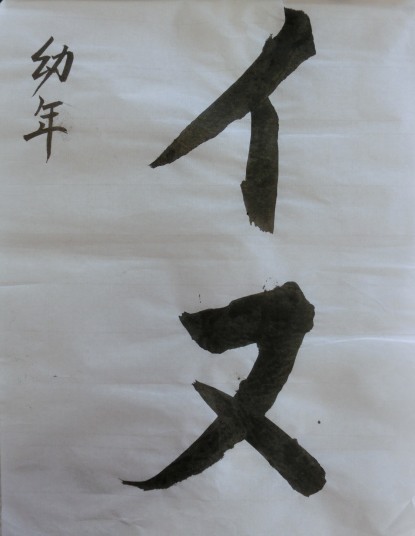 イヌ
幼年